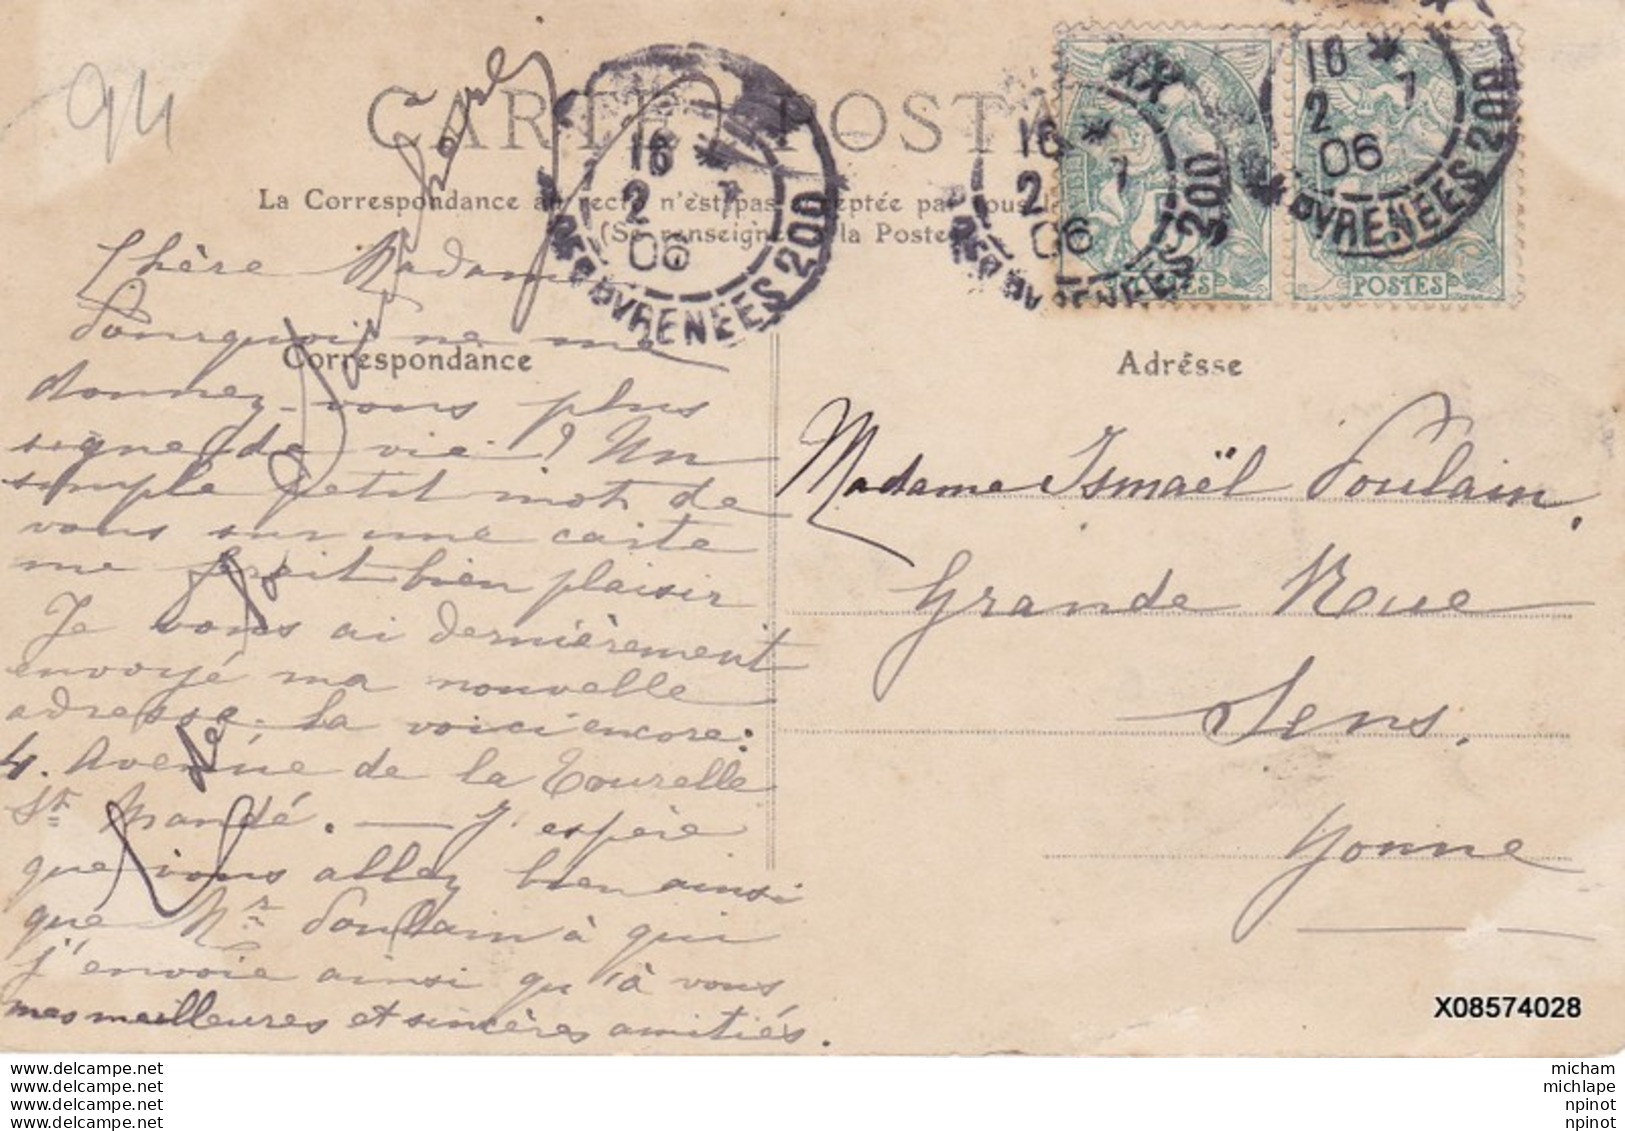 94
CARTE POSTA
La Correspondance au recto n'est pas acceptée par tous
(Se renseigner à la Poste
Correspondance
Adresse
16 *
2 7
06
PYRENEES 200
16 *
2 7
06
PYRENEES 200
XX
16 *
2 7
06
PYRENEES 200
POSTES
POSTES
Chère Madame
Pourquoi ne me
donnez-vous plus
signe de vie ? Un
simple petit mot de
vous sur une carte
me ferait bien plaisir
Je vous ai dernièrement
envoyé ma nouvelle
adresse, la voici encore :
4. Avenue de la Tourelle
St Mandé. — J'espère
que vous allez bien ainsi
que Mr Poulain à qui
j'envoie ainsi qu'à vous
mes meilleures et sincères amitiés.
Madame Ismaël Poulain,
Grande Rue
Sens,
Yonne
X08574028
delcampe.net
delcampe.net
delcampe.net
delcampe.net
micham
michlape
npinot
npinot